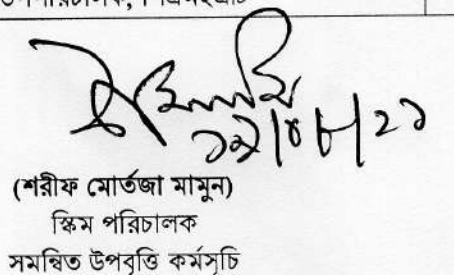 ১৯|০৮|২১
(শরীফ মোর্তজা মামুন)
স্কিম পরিচালক
সমন্বিত উপবৃত্তি কর্মসূচি